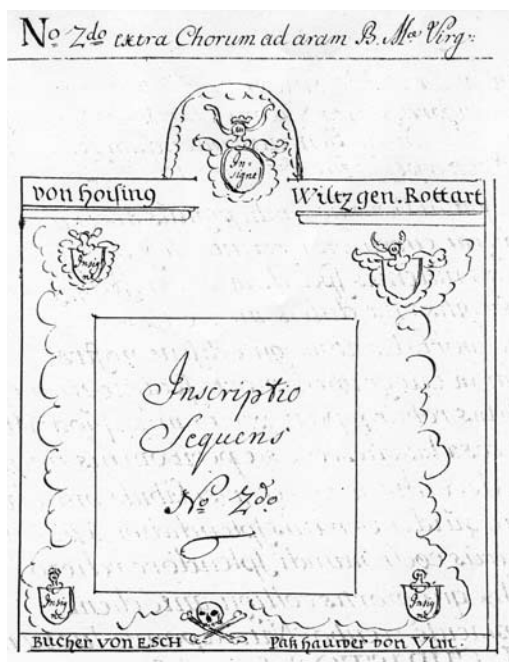 No 2do extra Chorum ad aram B. Mae Virg:
In-
signe
von Hoising Wiltz gen. Rottart
Insig
Inscriptio
Sequens
No 2do
Insig Insig
Bücher von ESCH Pak hauwer von Vlnt.